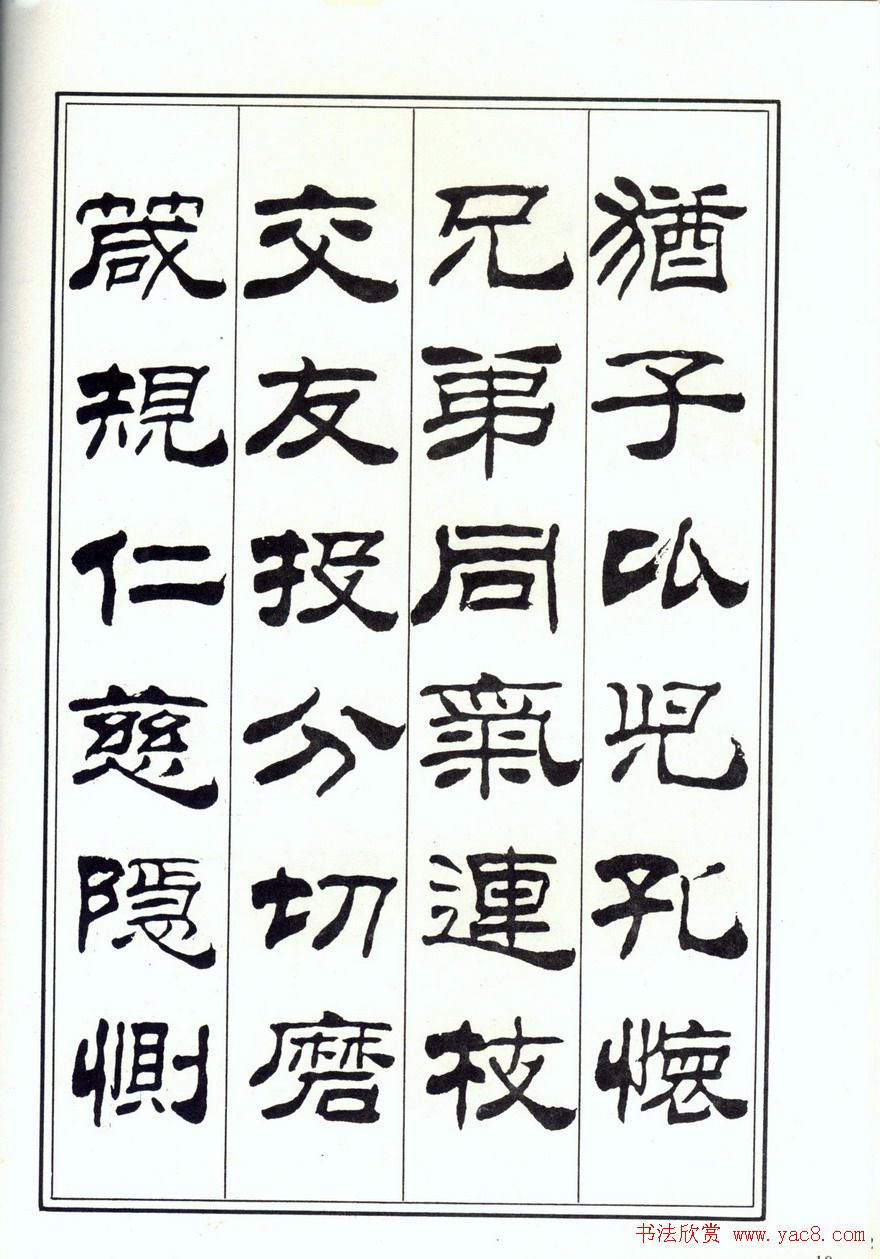 猶子比兒孔懷
兄弟同氣連枝
交友投分切磨
箴規仁慈隱惻
书法欣赏 www.yac8.com